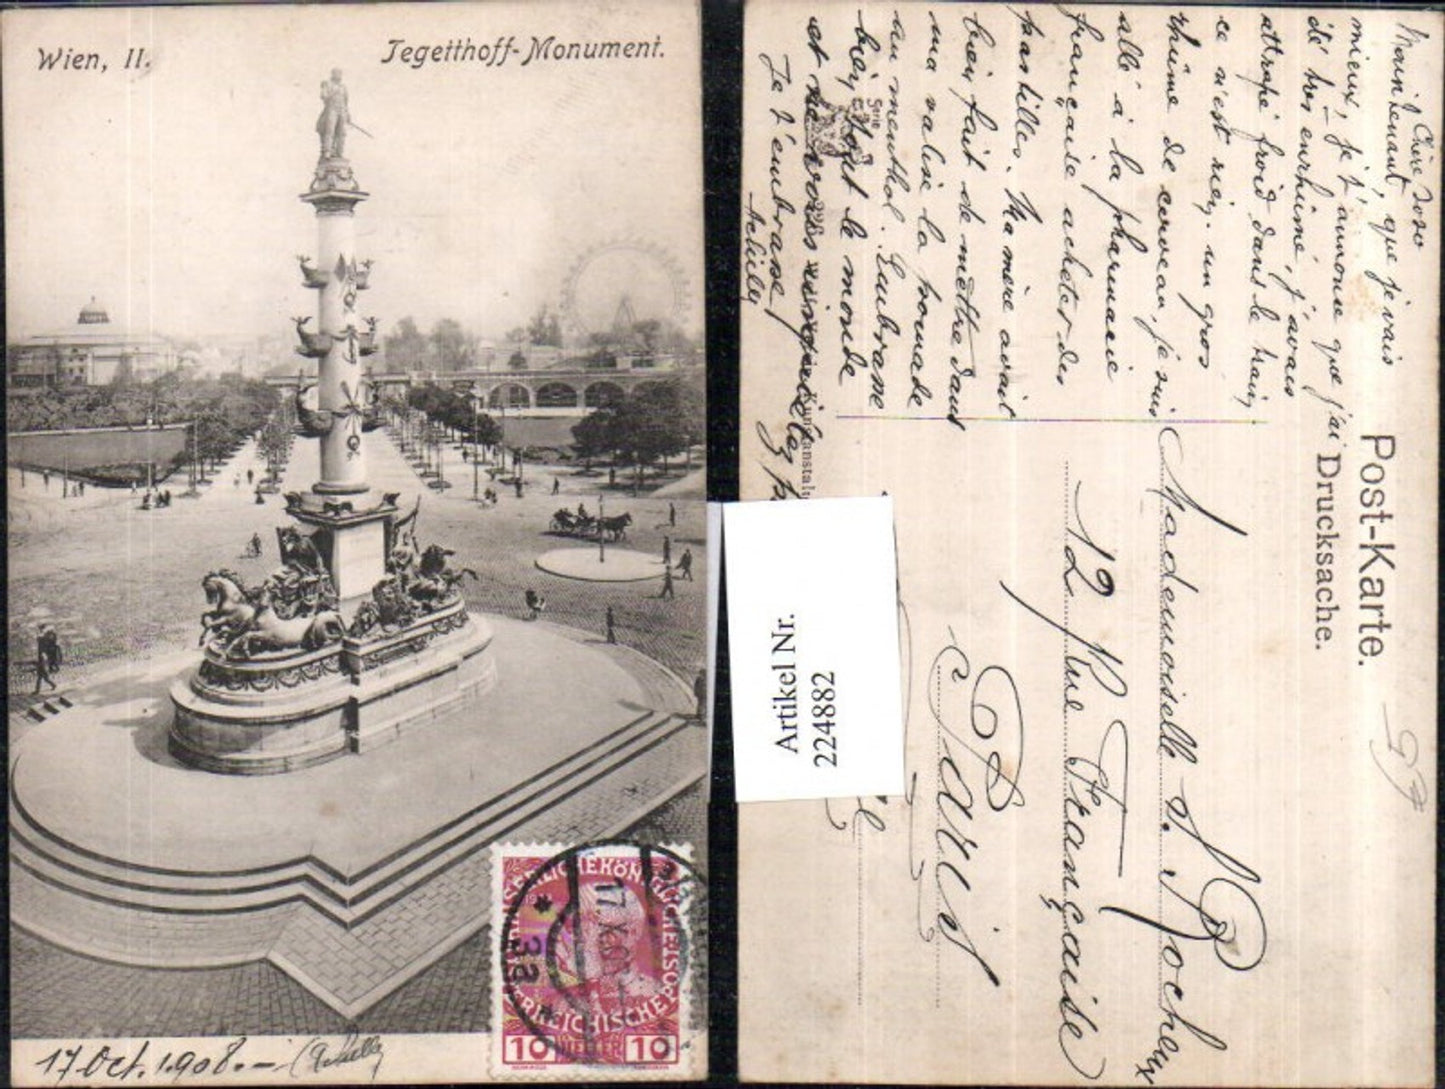 Wien, II.
Tegetthoff-Monument.
17 Oct. 1908. -
KAISERLICHE KÖNIGLICHE
ÖSTERREICHISCHE POST
17.X.
3a
10 HELLER 10
Post-Karte.
Drucksache.
Chère Zozo
Maintenant, que je vais
mieux, je t'annonce que j'ai
été très enrhumé, j'avais
attrapé froid dans le train,
ce n'est rien. un gros
rhûme de cerveau, je suis
allé à la pharmacie
française acheter des
pastilles. Ma mère avait
bien fait de mettre dans
ma valise la pomade
au menthol. Embrasse
bien tout le monde
et ne vous
Je t'embrasse,
Achilly
Serie
Mademoiselle S. Rocheux
12 Rue Française
Paris
Artikel Nr.
224882